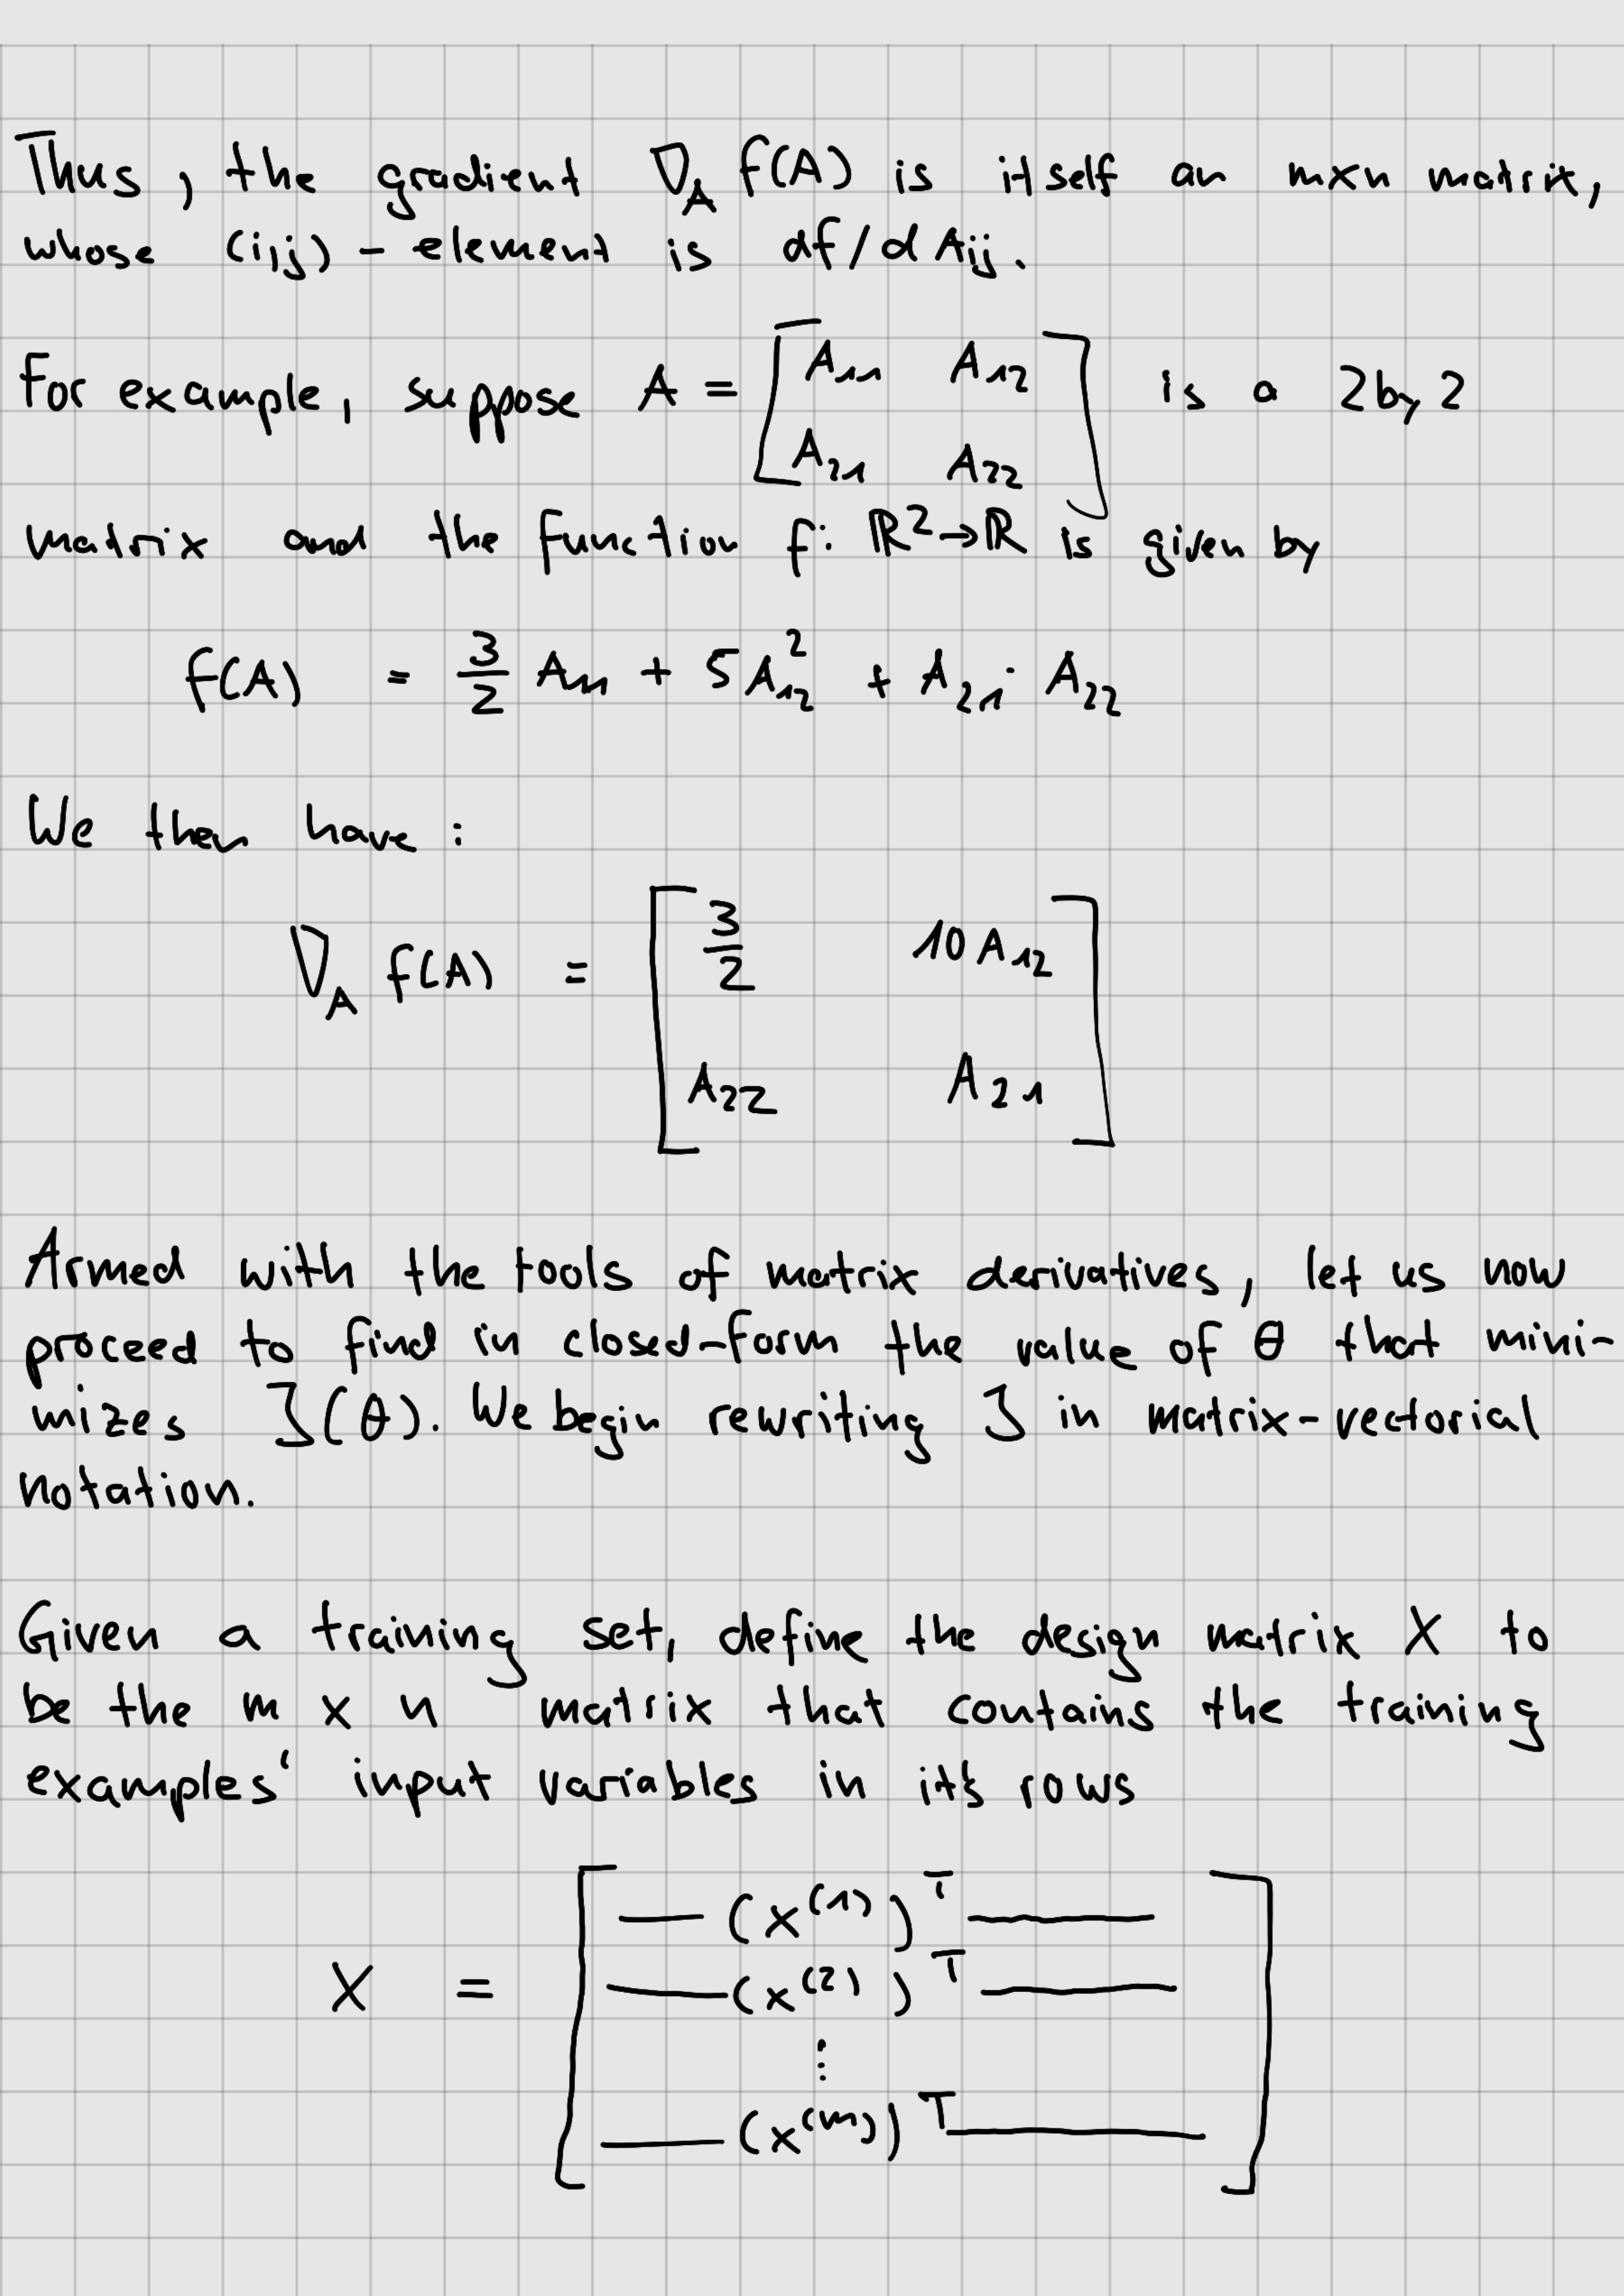 Thus, the gradient ∇_A f(A) is itself an mxn matrix,
whose (i,j) - element is df/dA_ij.
For example, suppose A = [A_11 A_12; A_21 A_22] is a 2 by 2
matrix and the function f: ℝ^2→ℝ is given by
f(A) = 3/2 A_11 + 5A_12^2 + A_21 · A_22
We then have:
∇_A f(A) = [3/2 10A_12; A_22 A_21]
Armed with the tools of matrix derivatives, let us now
proceed to find in closed-form the value of θ that mini-
mizes J(θ). We begin rewriting J in matrix-vectorial
notation.
Given a training set, define the design matrix X to
be the m x n matrix that contains the training
examples' input variables in it's rows
X = [— (x^(1))^T —
— (x^(2))^T —
⋮
— (x^(m))^T —]